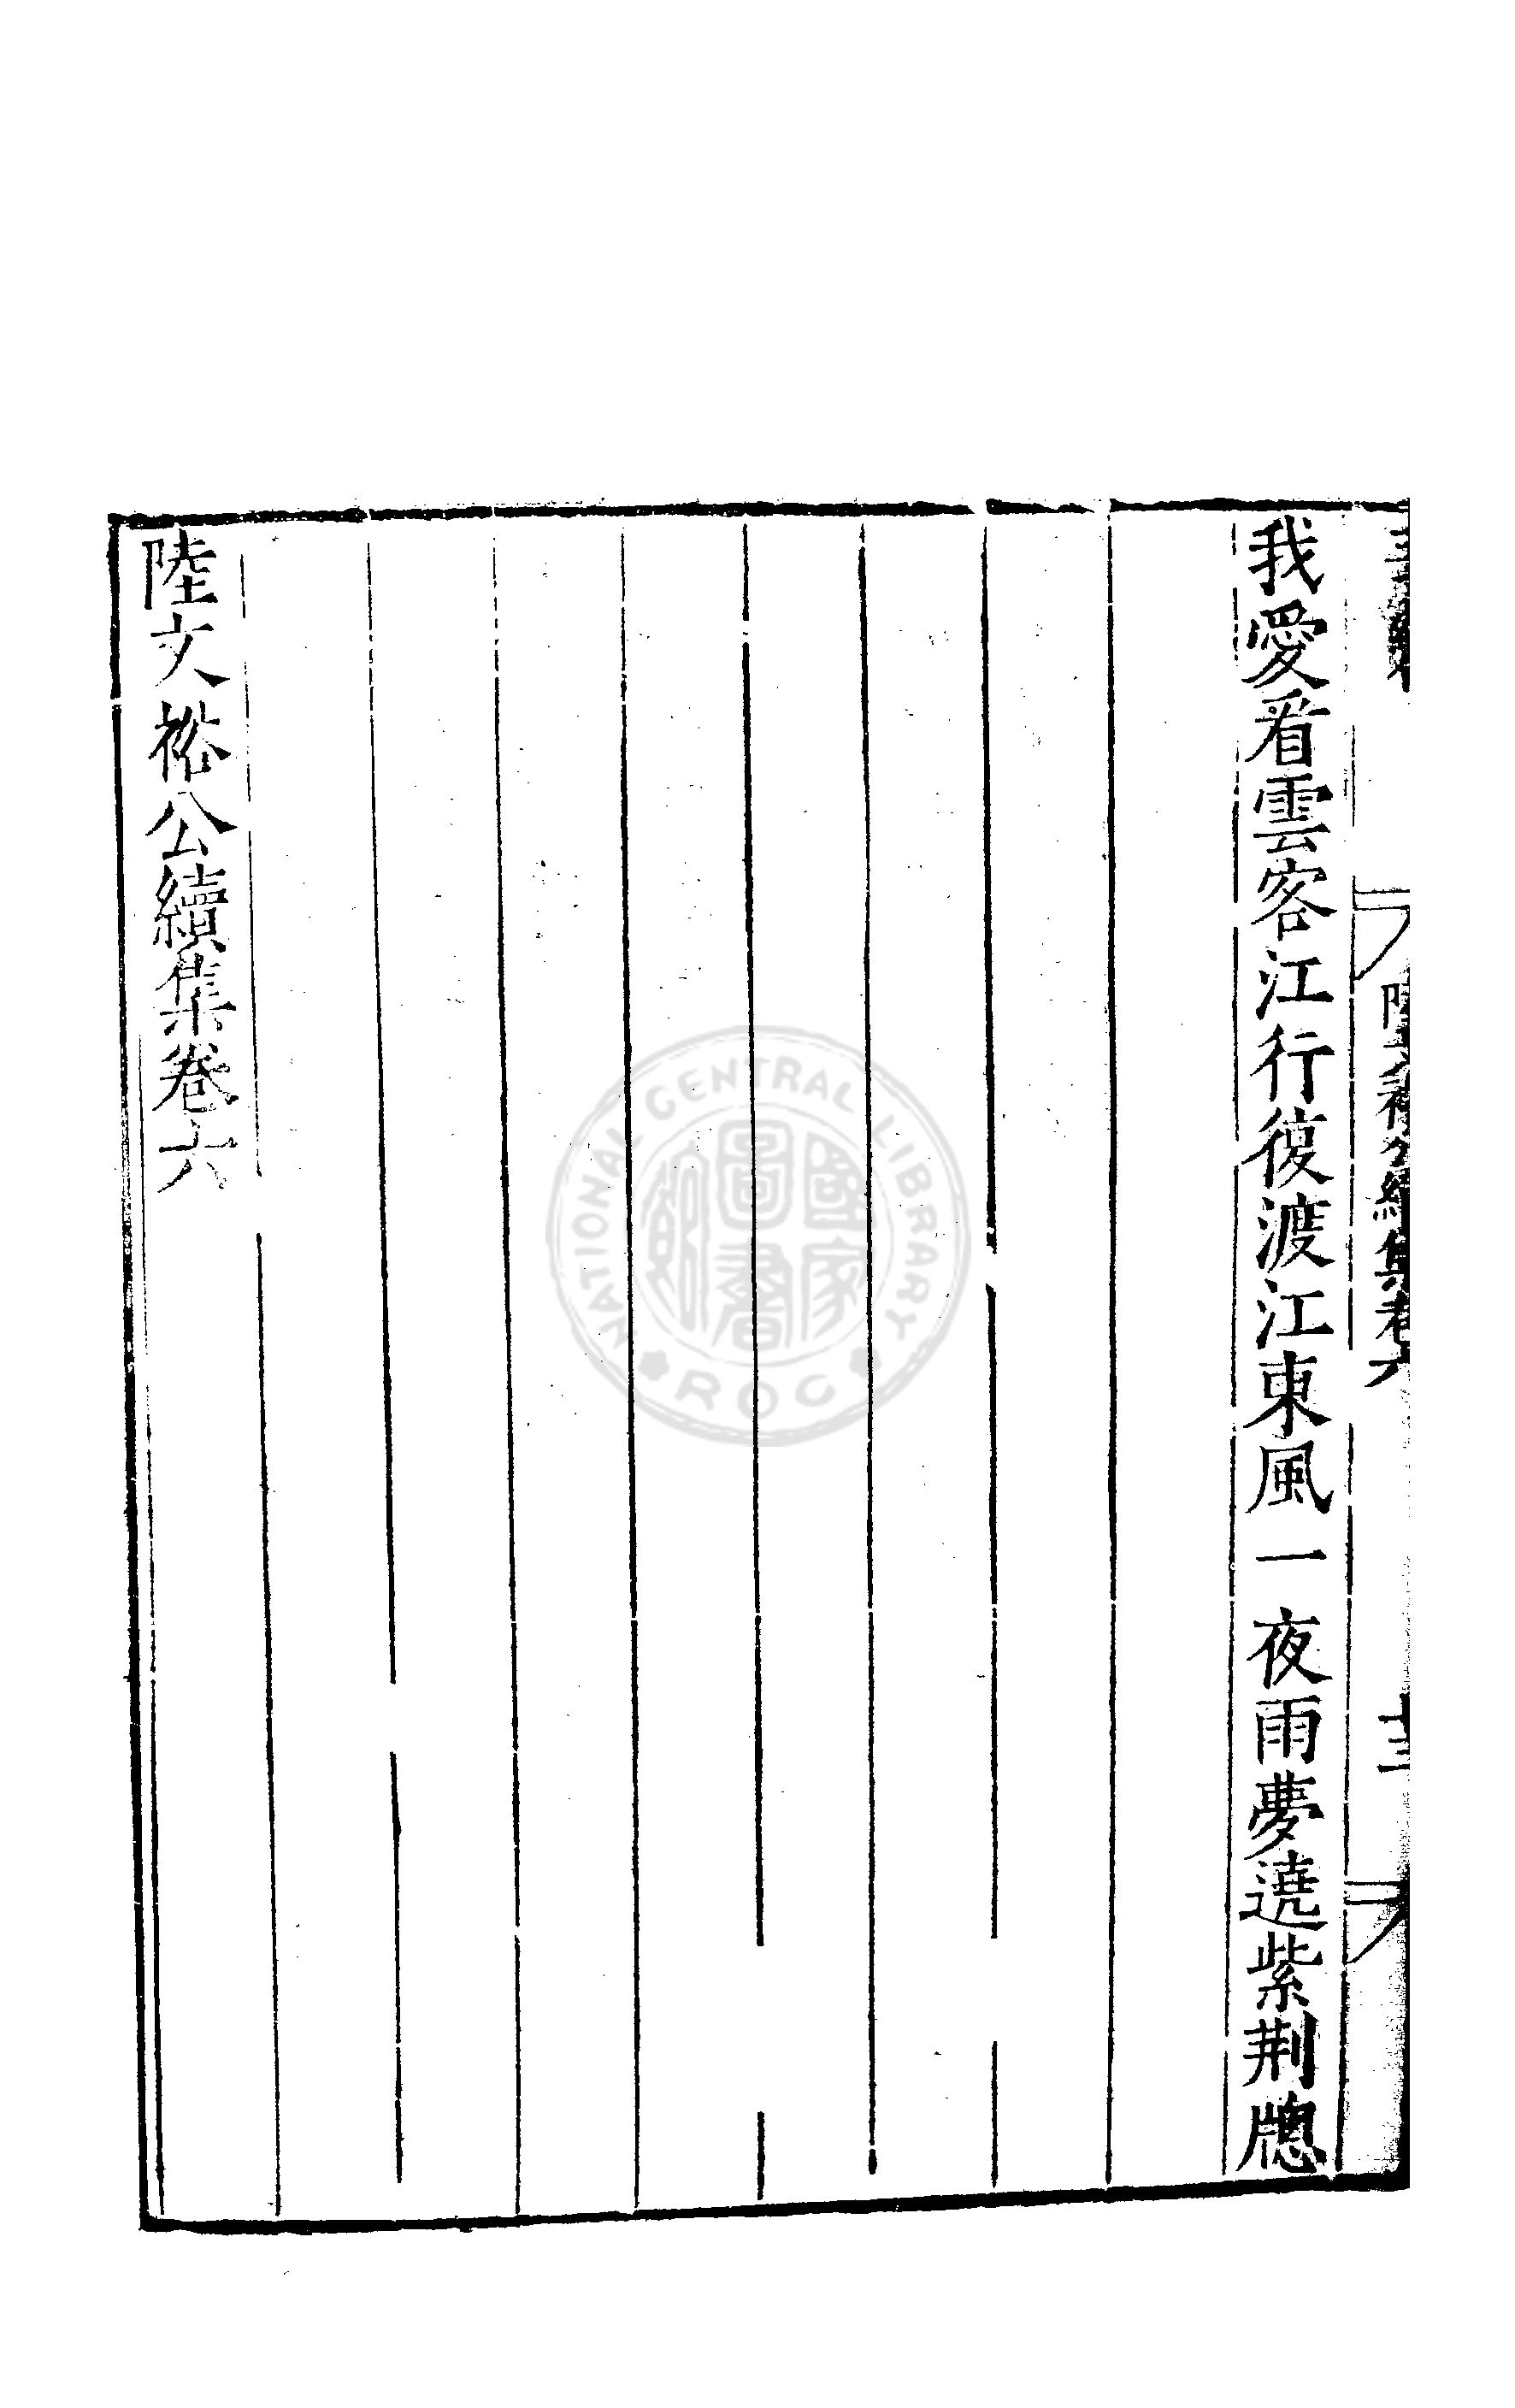 我愛看雲客江行復渡江東風一夜雨夢遶紫荆牕
陸文裕公續集卷六
陸文裕公續集卷六
NATIONAL CENTRAL LIBRARY
ROC
國家圖書館